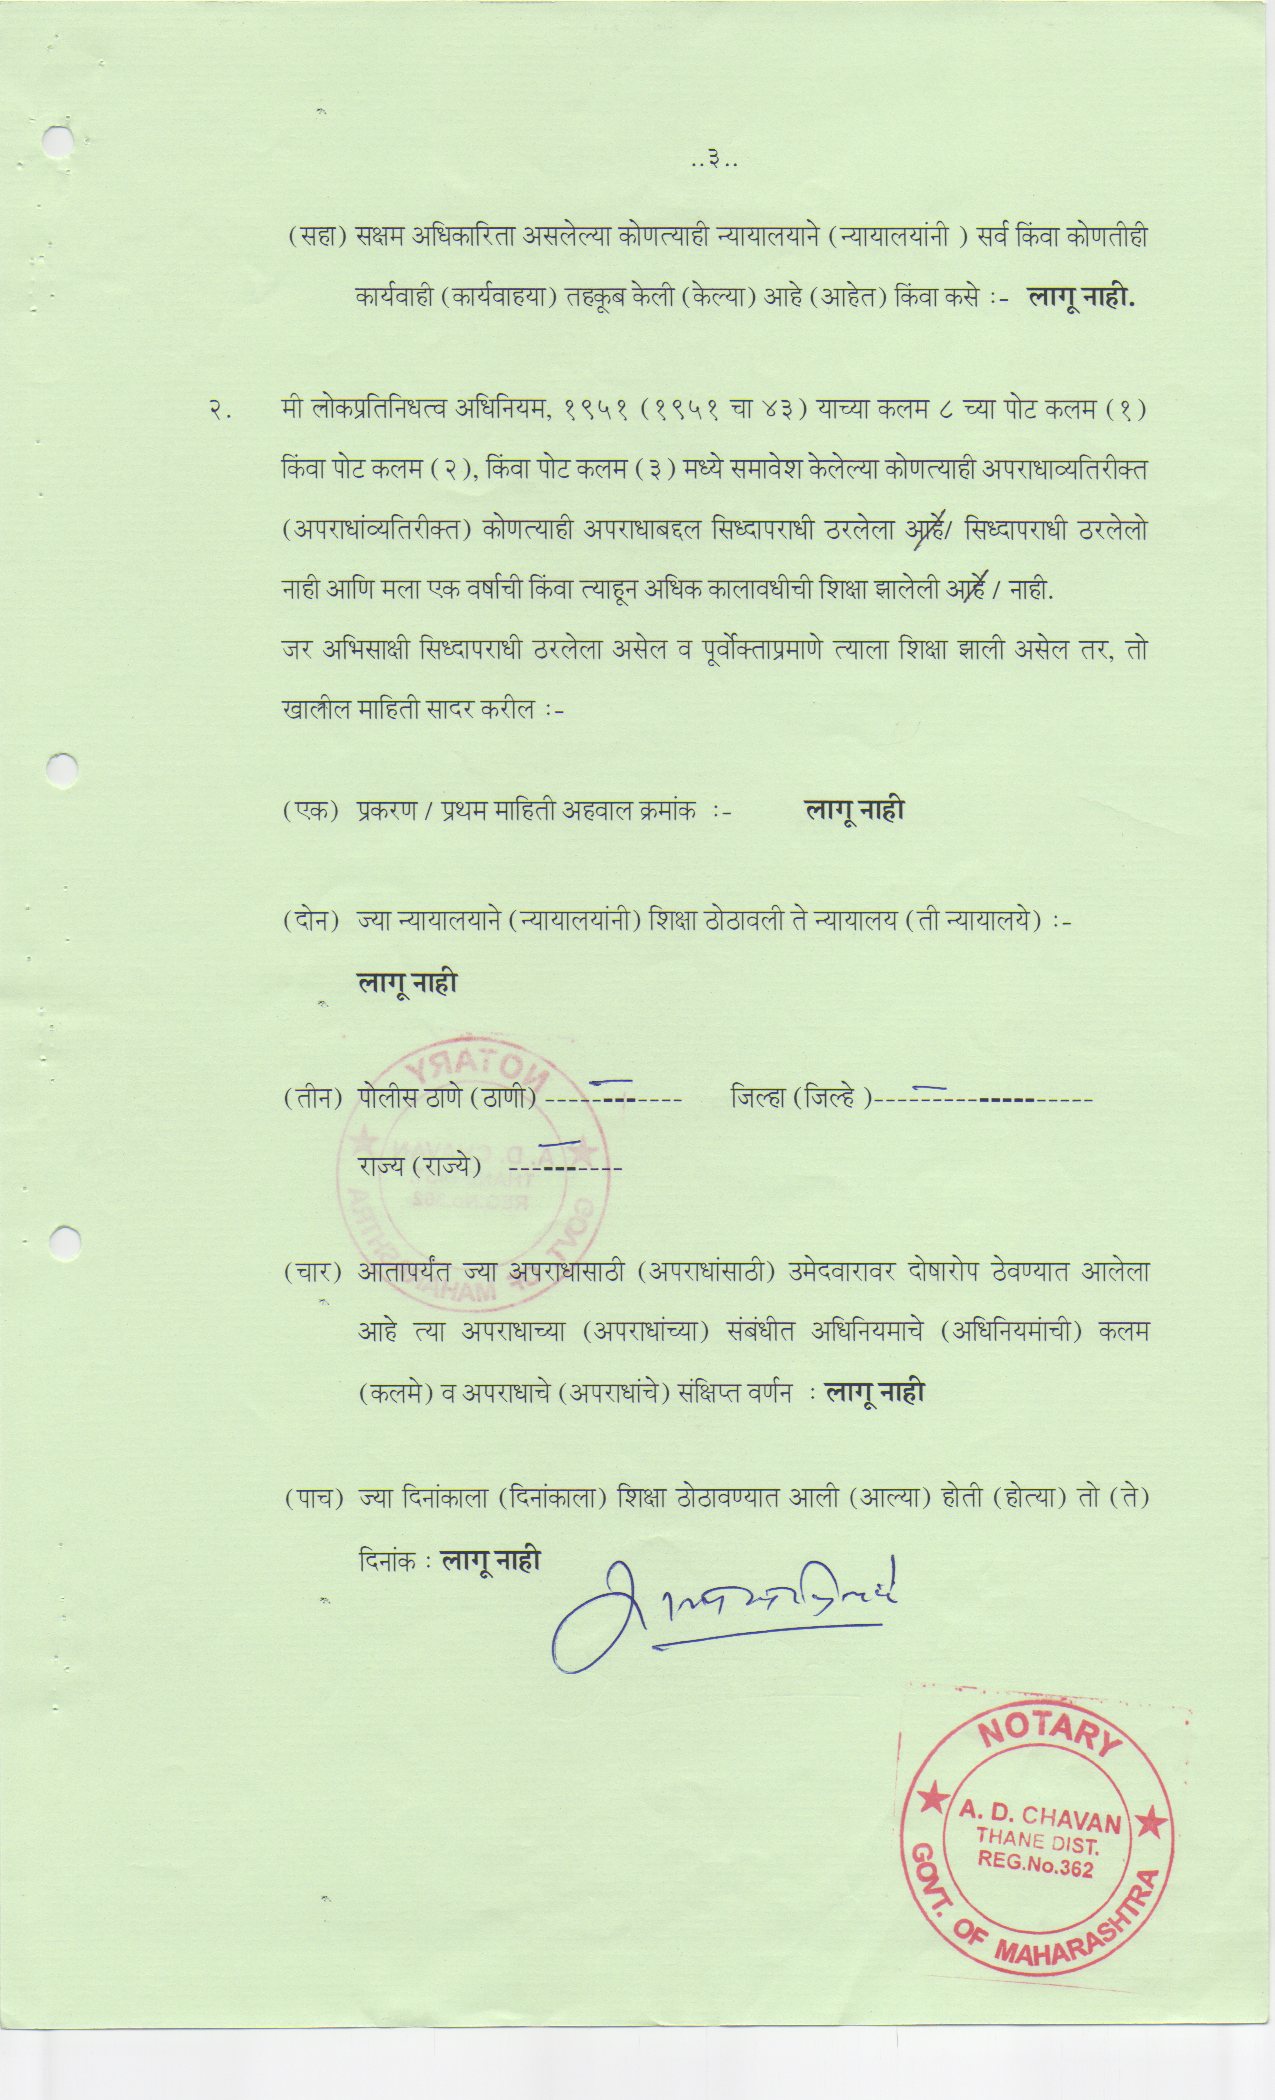 ..३..
(सहा) सक्षम अधिकारिता असलेल्या कोणत्याही न्यायालयाने (न्यायालयांनी ) सर्व किंवा कोणतीही
कार्यवाही (कार्यवाहया) तहकूब केली (केल्या) आहे (आहेत) किंवा कसे :- लागू नाही.
२. मी लोकप्रतिनिधत्व अधिनियम, १९५१ (१९५१ चा ४३) याच्या कलम ८ च्या पोट कलम (१)
किंवा पोट कलम (२), किंवा पोट कलम (३) मध्ये समावेश केलेल्या कोणत्याही अपराधाव्यतिरीक्त
(अपराधांव्यतिरीक्त) कोणत्याही अपराधाबद्दल सिध्दापराधी ठरलेला आहे/ सिध्दापराधी ठरलेलो
नाही आणि मला एक वर्षाची किंवा त्याहून अधिक कालावधीची शिक्षा झालेली आहे / नाही.
जर अभिसाक्षी सिध्दापराधी ठरलेला असेल व पूर्वोक्ताप्रमाणे त्याला शिक्षा झाली असेल तर, तो
खालील माहिती सादर करील :-
(एक) प्रकरण / प्रथम माहिती अहवाल क्रमांक :- लागू नाही
(दोन) ज्या न्यायालयाने (न्यायालयांनी) शिक्षा ठोठावली ते न्यायालय (ती न्यायालये) :-
लागू नाही
(तीन) पोलीस ठाणे (ठाणी) ------------- जिल्हा (जिल्हे )--------------------
राज्य (राज्ये) -----------
(चार) आतापर्यंत ज्या अपराधासाठी (अपराधांसाठी) उमेदवारावर दोषारोप ठेवण्यात आलेला
आहे त्या अपराधाच्या (अपराधांच्या) संबंधीत अधिनियमाचे (अधिनियमांची) कलम
(कलमे) व अपराधाचे (अपराधांचे) संक्षिप्त वर्णन : लागू नाही
(पाच) ज्या दिनांकाला (दिनांकाला) शिक्षा ठोठावण्यात आली (आल्या) होती (होत्या) तो (ते)
दिनांक : लागू नाही
NOTARY
A. D. CHAVAN
THANE DIST.
REG.No.362
GOVT. OF MAHARASHTRA